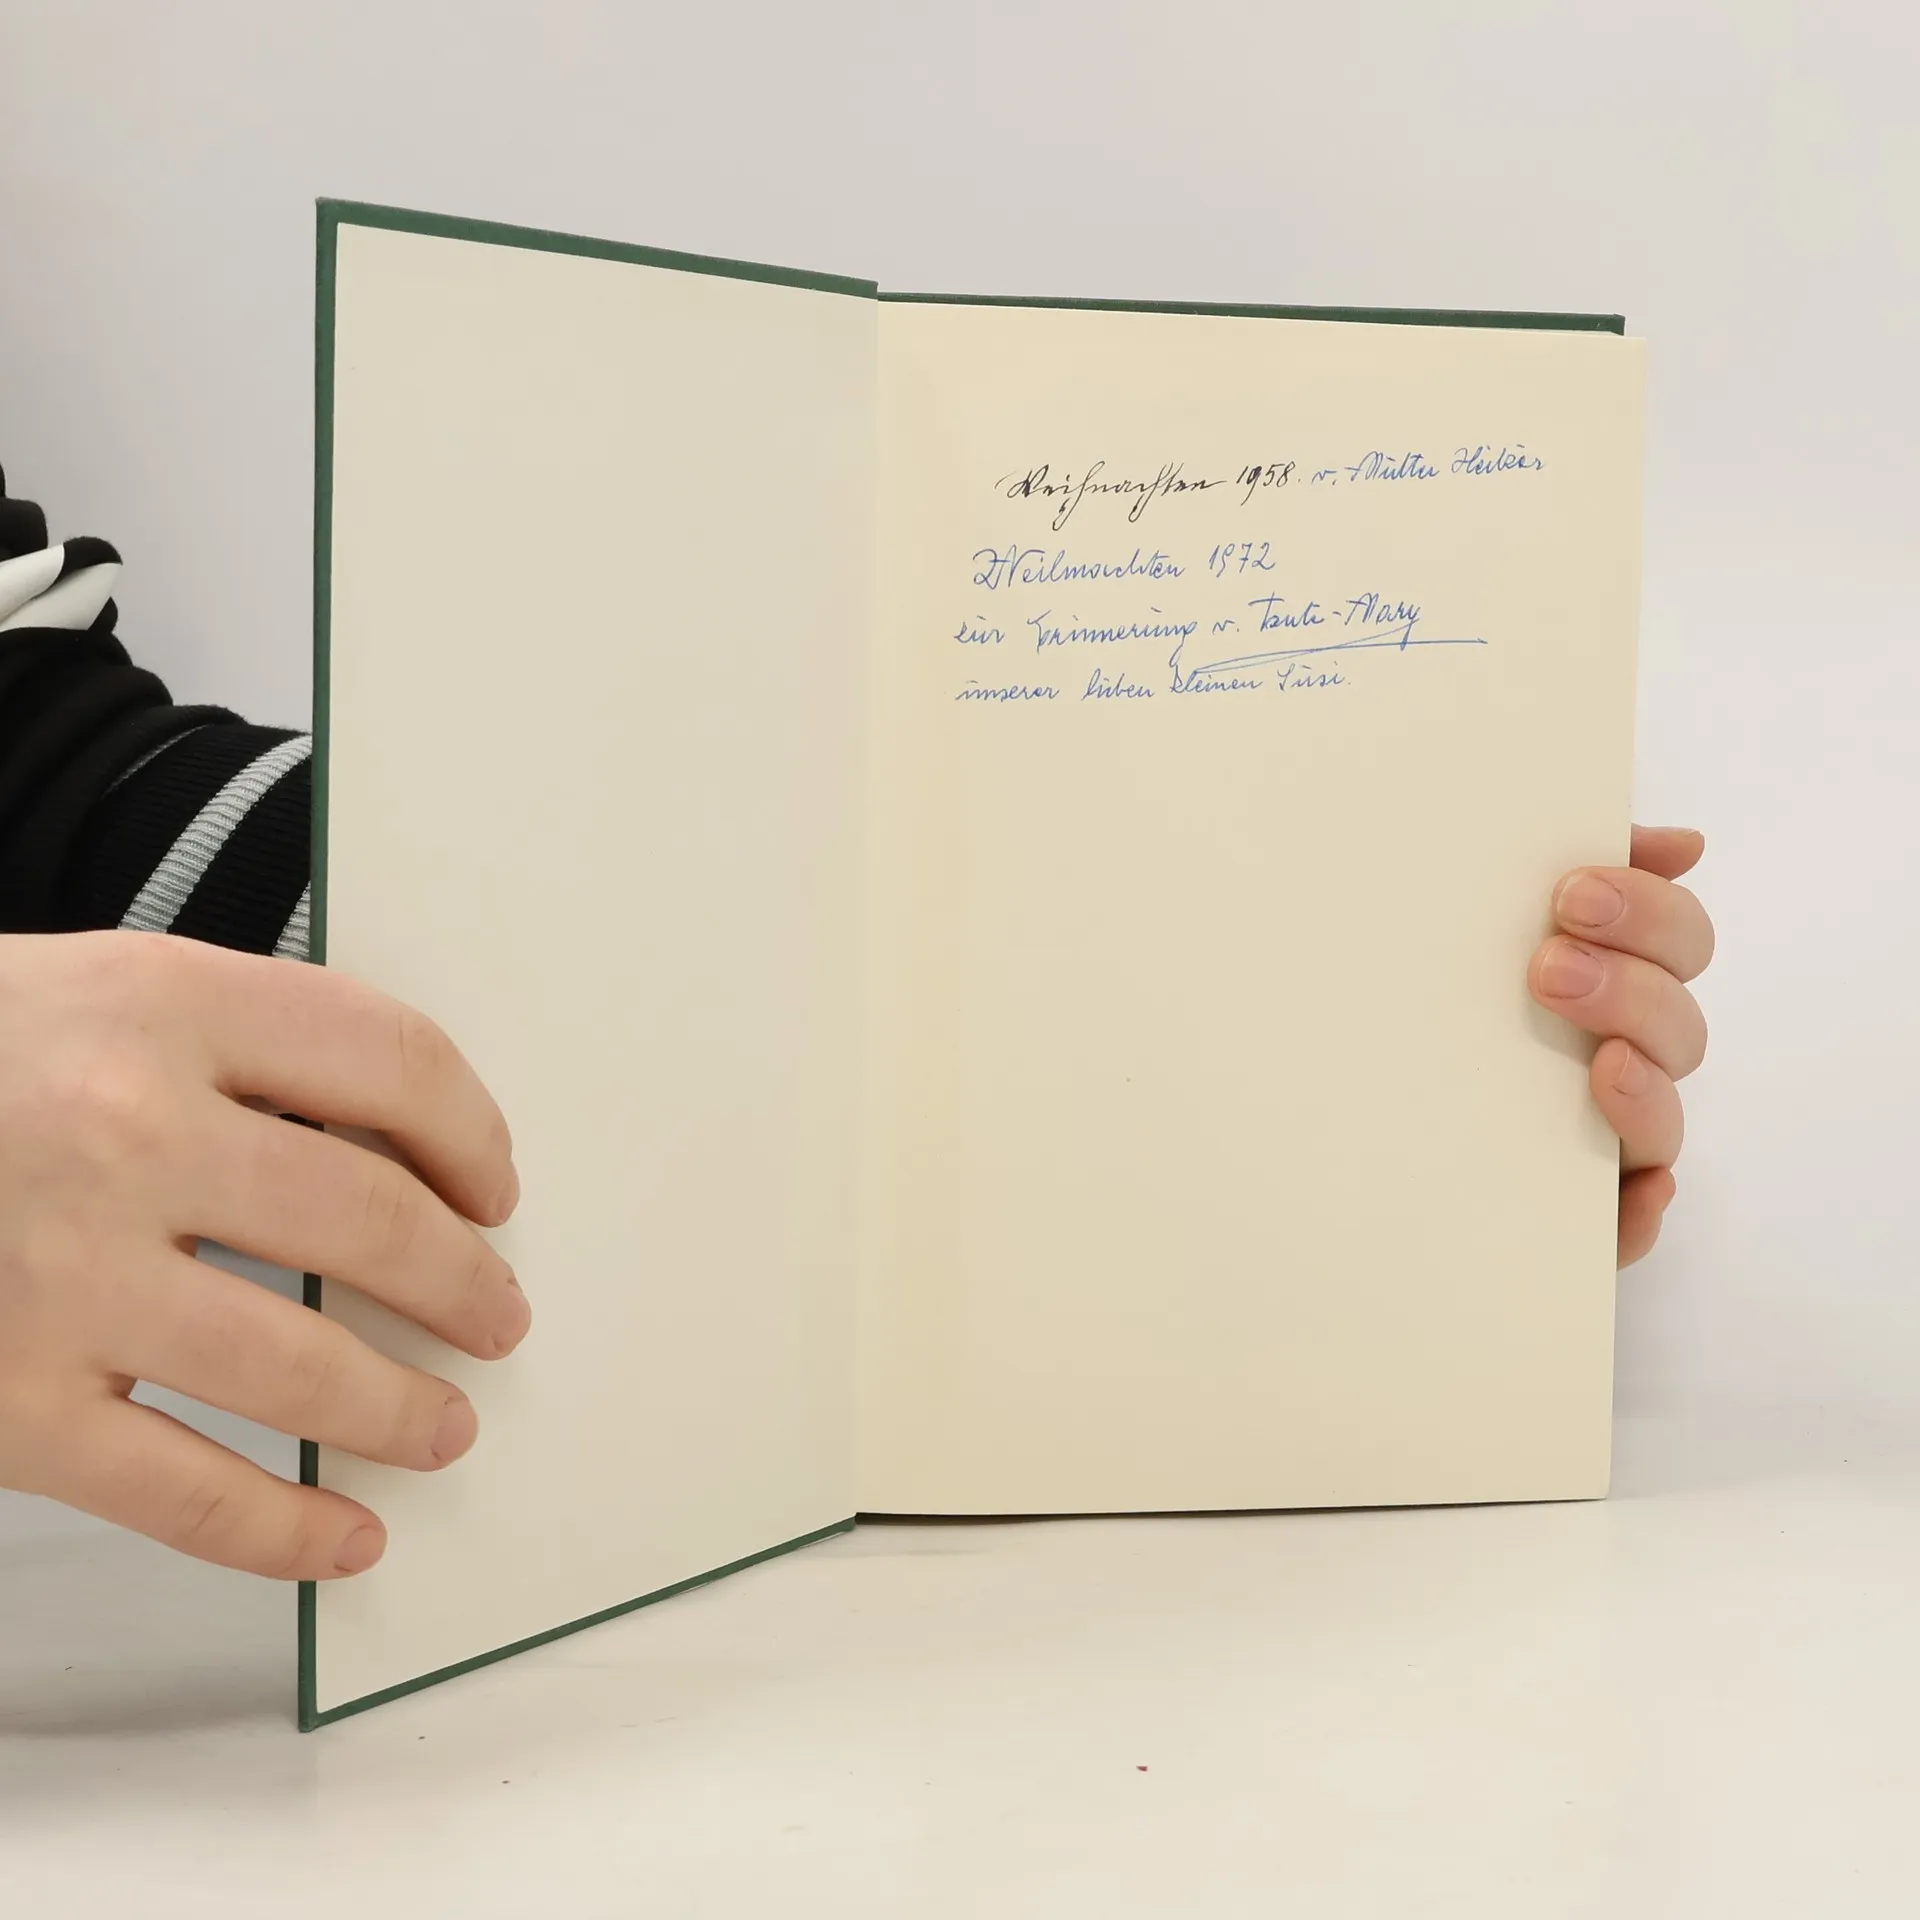 Weihnachten 1958. v. Mutter
Weihnachten 1972
zur Erinnerung v. Tante-Mary
unserer lieben kleinen Susi.